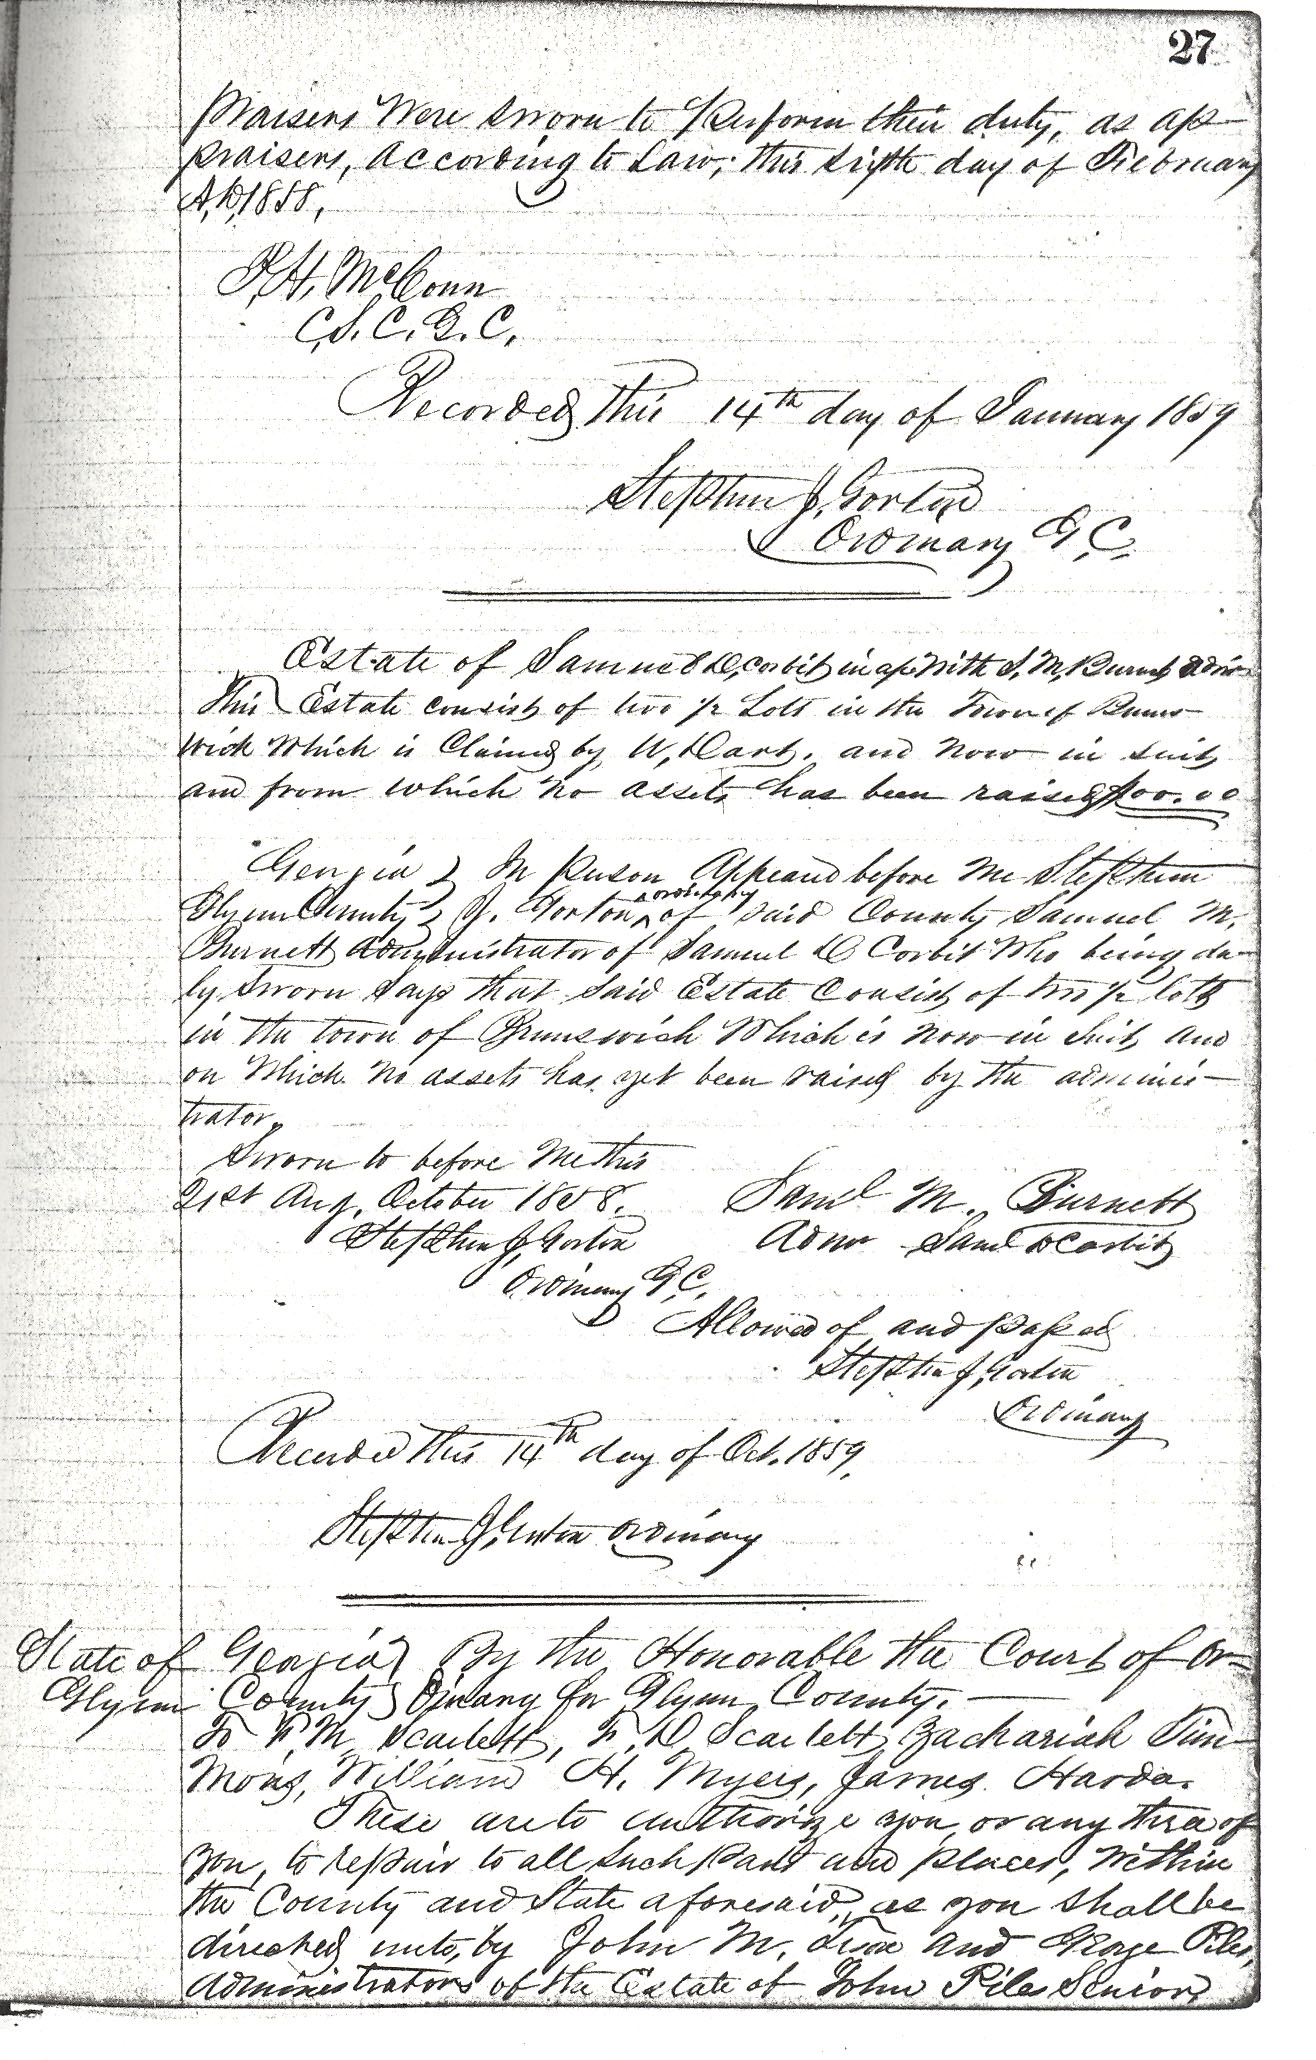 27
praisers Were sworn to perform their duty, as ap-
praisers, according to Law; this sixth day of Februrary
A,D,1858,
P,H, McConn
C,S. C. G. C,
Recorded This 14th day of January 1859
Stephen J, Gorton
Ordinary G C,
Estate of Samuel D, Corbit in a/c With S, M, Burnett Admr
This Estate consists of two 1/2 Lots in the Town of Bruns-
wick Which is Claimed by W, Dart, and now in suit,
and from which no assets has been raised $00.00
Georgia } In person Appeared before me Stephen
Glynn County } J. Gorton ordinary of said County Samuel M.
Burnett Administrator of Samuel D Corbit Who being du-
ly sworn says that said Estate Consists of two 1/2 lots
in the town of Brunswick Which is now in suit, and
on Which no assets has yet been raised by the adminis-
trator.
Sworn to before me this
21st Aug, October 1858.
Saml M. Burnett
Stephen J, Gorton
Admr Saml D Corbit
Ordinary G C,
Allowed of and passed
Stephen J, Gorton
Ordinary
Recorded this 14th day of Oct. 1859,
Stephen J, Gorton Ordinary
State of Georgia } By the Honorable the Court of Or-
Glynn County } dinary for Glynn County.
To F, M, Scarlett, F, D Scarlett, Zachariah Tim-
mons, William H. Myers, James Hardee.
These are to authorize you, or any three of
you, to repair to all such parts and places, within
the County and State aforesaid, as you shall be
directed unto, by John M. Tison and George Piles,
Administrators of the Estate of John Piles Senior,